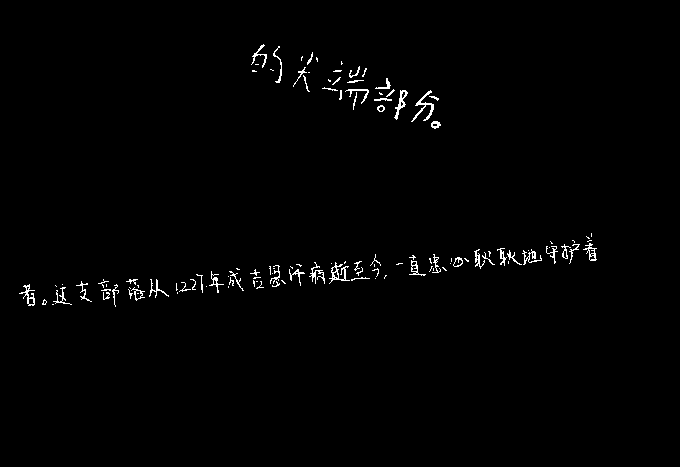 的尖端部分。
者。这支部落从1227年成吉思汗病逝至今,一直忠心耿耿地守护着